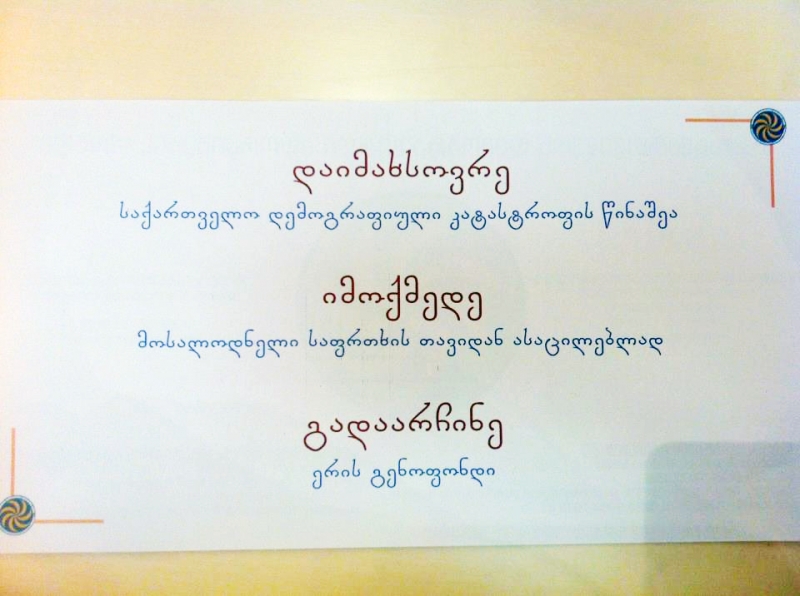 დაიმახსოვრე
საქართველო დემოგრაფიული კატასტროფის წინაშეა
იმოქმედე
მოსალოდნელი საფრთხის თავიდან ასაცილებლად
გადაარჩინე
ერის გენოფონდი